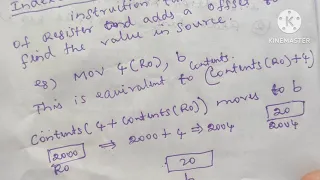 Index
instruction
of Register and adds a offset to
find the value in source.
eg) MOV 4(R0), b
This is equivalent to (contents(R0)+4)
contents
Contents(4+contents(R0)) moves to b
2000 ⇒ 2000+4 ⇒ 2004 20
R0 2004
20
b
KINEMASTER